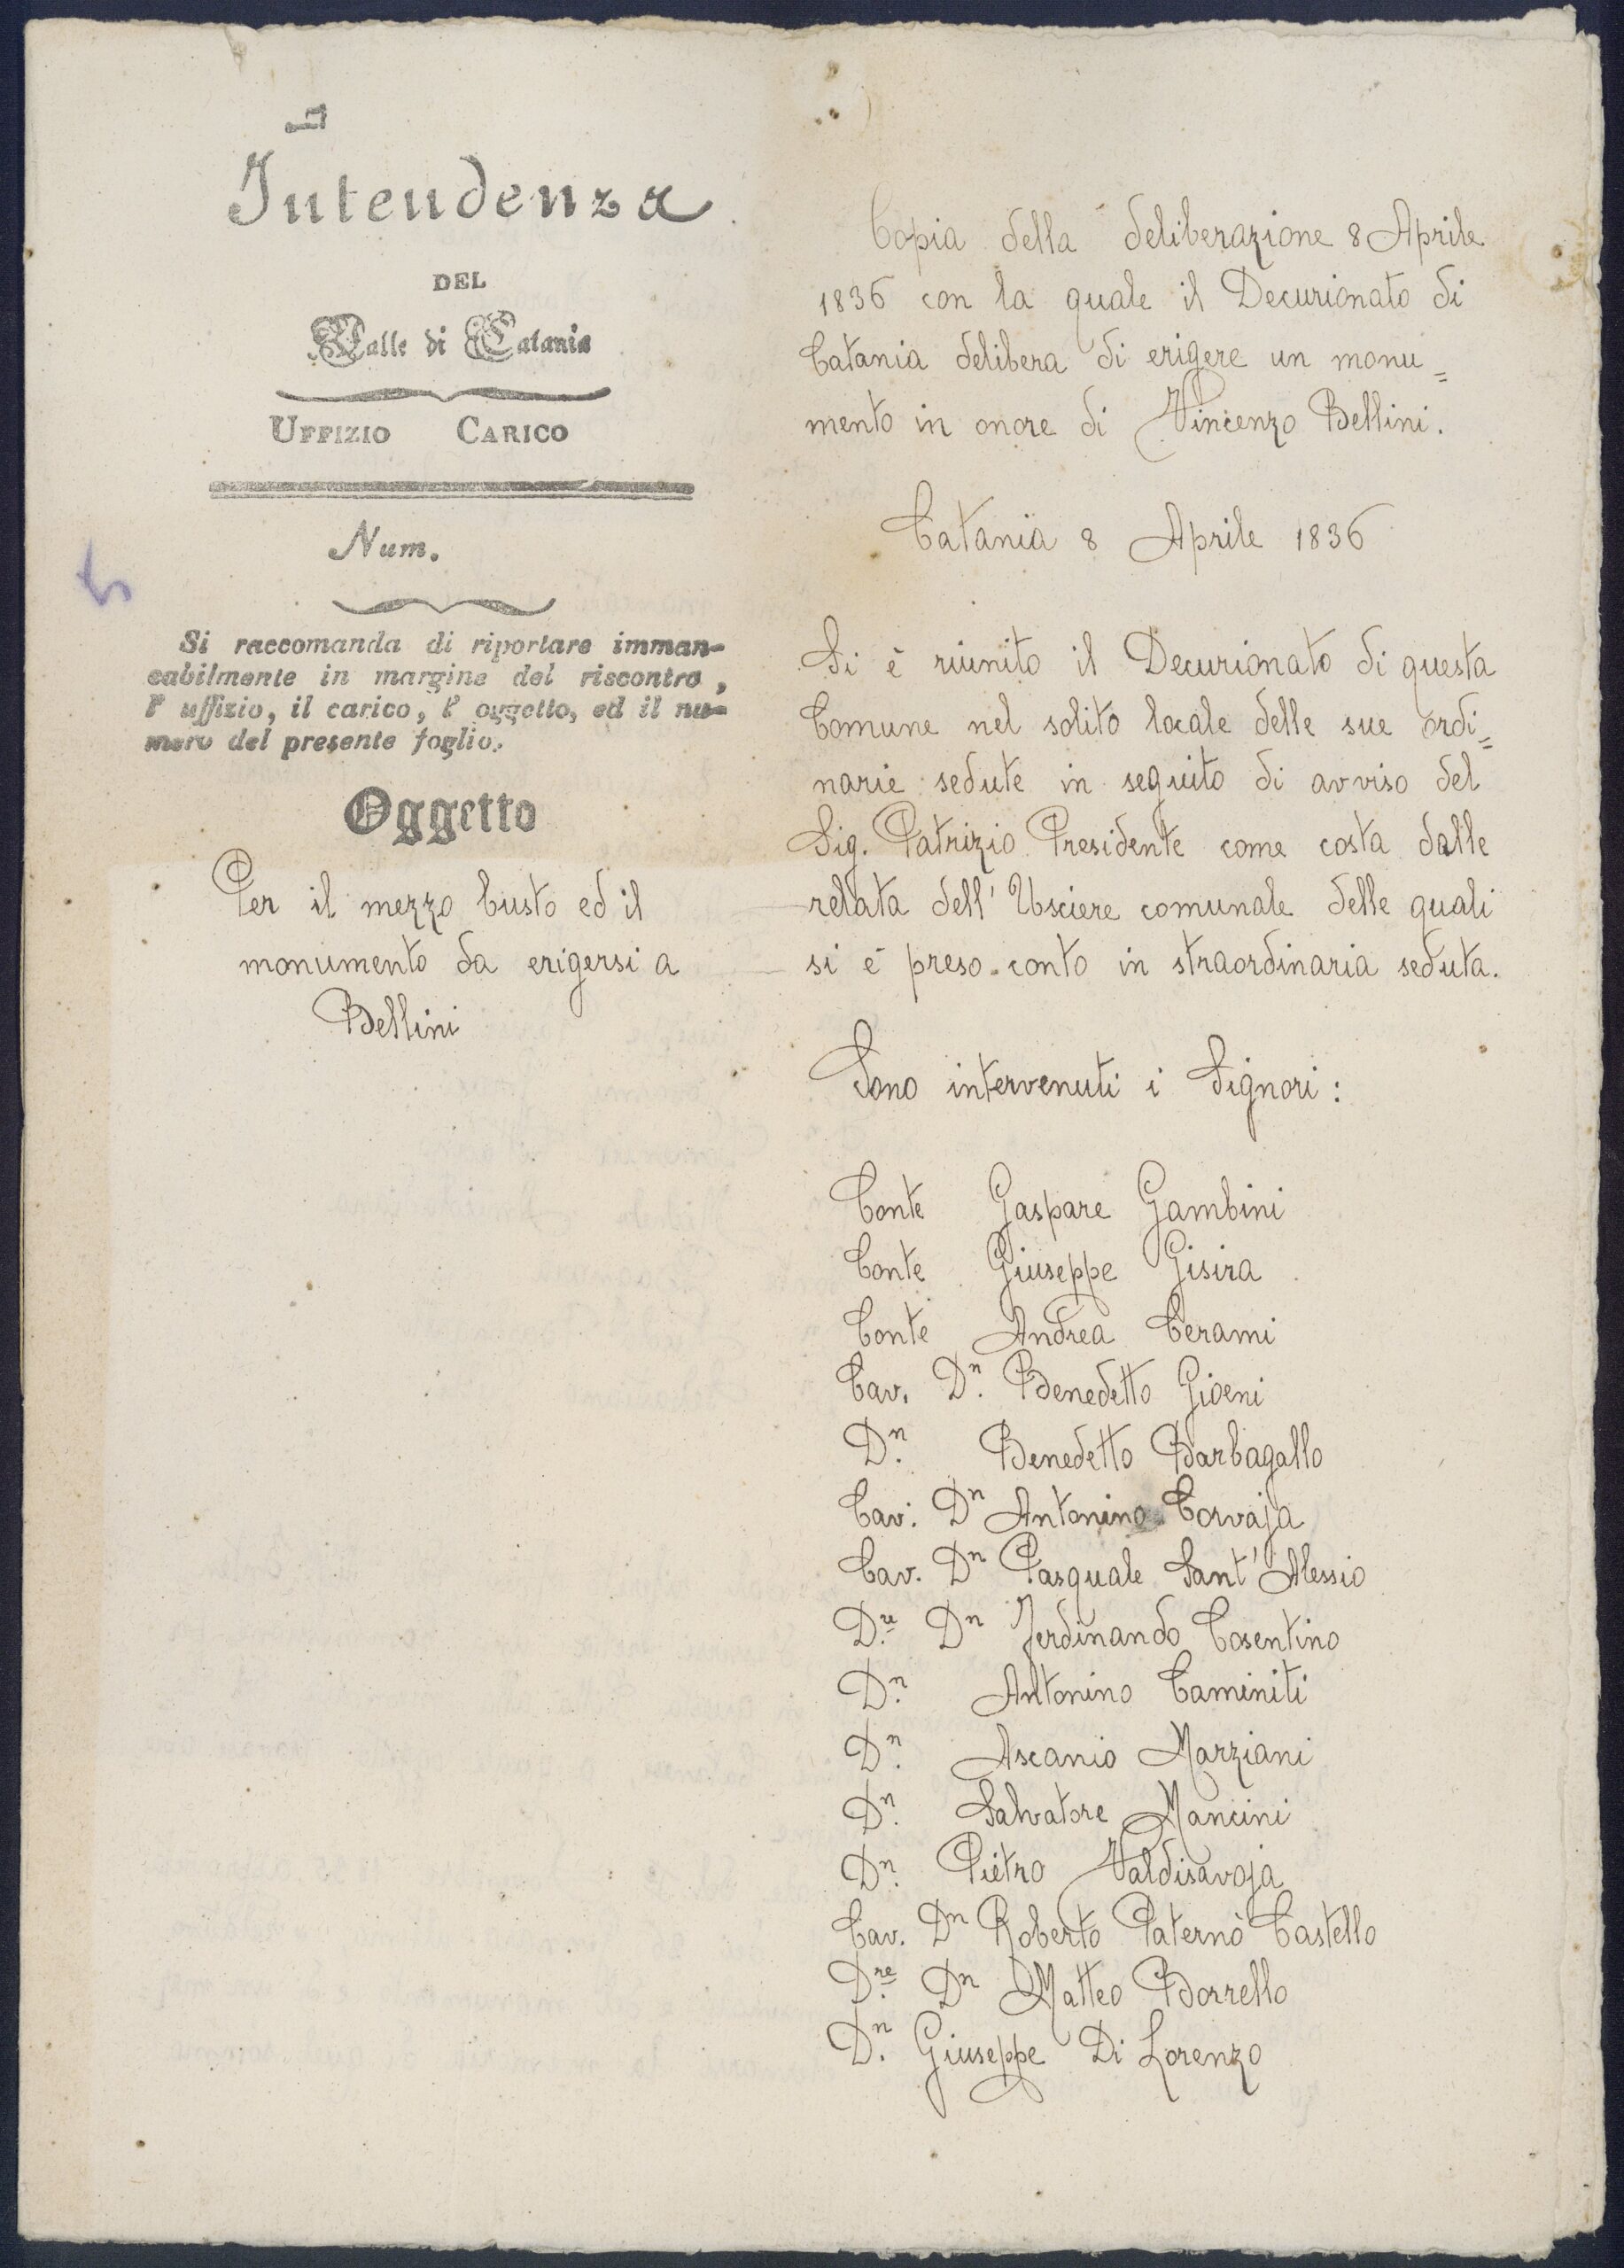 Intendenza
DEL
Valle di Catania
UFFIZIO CARICO
Num.
Si raccomanda di riportare imman-
cabilmente in margine del riscontro,
l' uffizio, il carico, l' oggetto, ed il nu-
mero del presente foglio.
Oggetto
Per il mezzo busto ed il
monumento da erigersi a
Bellini
Copia della deliberazione 8 Aprile
1836 con la quale il Decurionato di
Catania delibera di erigere un monu=
mento in onore di Vincenzo Bellini.
Catania 8 Aprile 1836
Si è riunito il Decurionato di questa
Comune nel solito locale delle sue ordi=
narie sedute in seguito di avviso del
Sig. Patrizio Presidente come costa dalle
relata dell' Usciere comunale delle quali
si è preso conto in straordinaria seduta.
Sono intervenuti i Signori:
Conte Gaspare Gambini
Conte Giuseppe Gisira
Conte Andrea Cerami
Cav. Dn. Benedetto Gioeni
Dn. Benedetto Barbagallo
Cav. Dn Antonino Corvaja
Cav. Dn Pasquale Sant' Alessio
D.re Dn Ferdinando Cosentino
Dn. Antonino Caminiti
Dn. Ascanio Marziani
Dn. Salvatore Mancini
Dn. Pietro Valdisavoja
Cav. Dn Roberto Paternò Castello
D.re Dn Matteo Borrello
Dn. Giuseppe Di Lorenzo